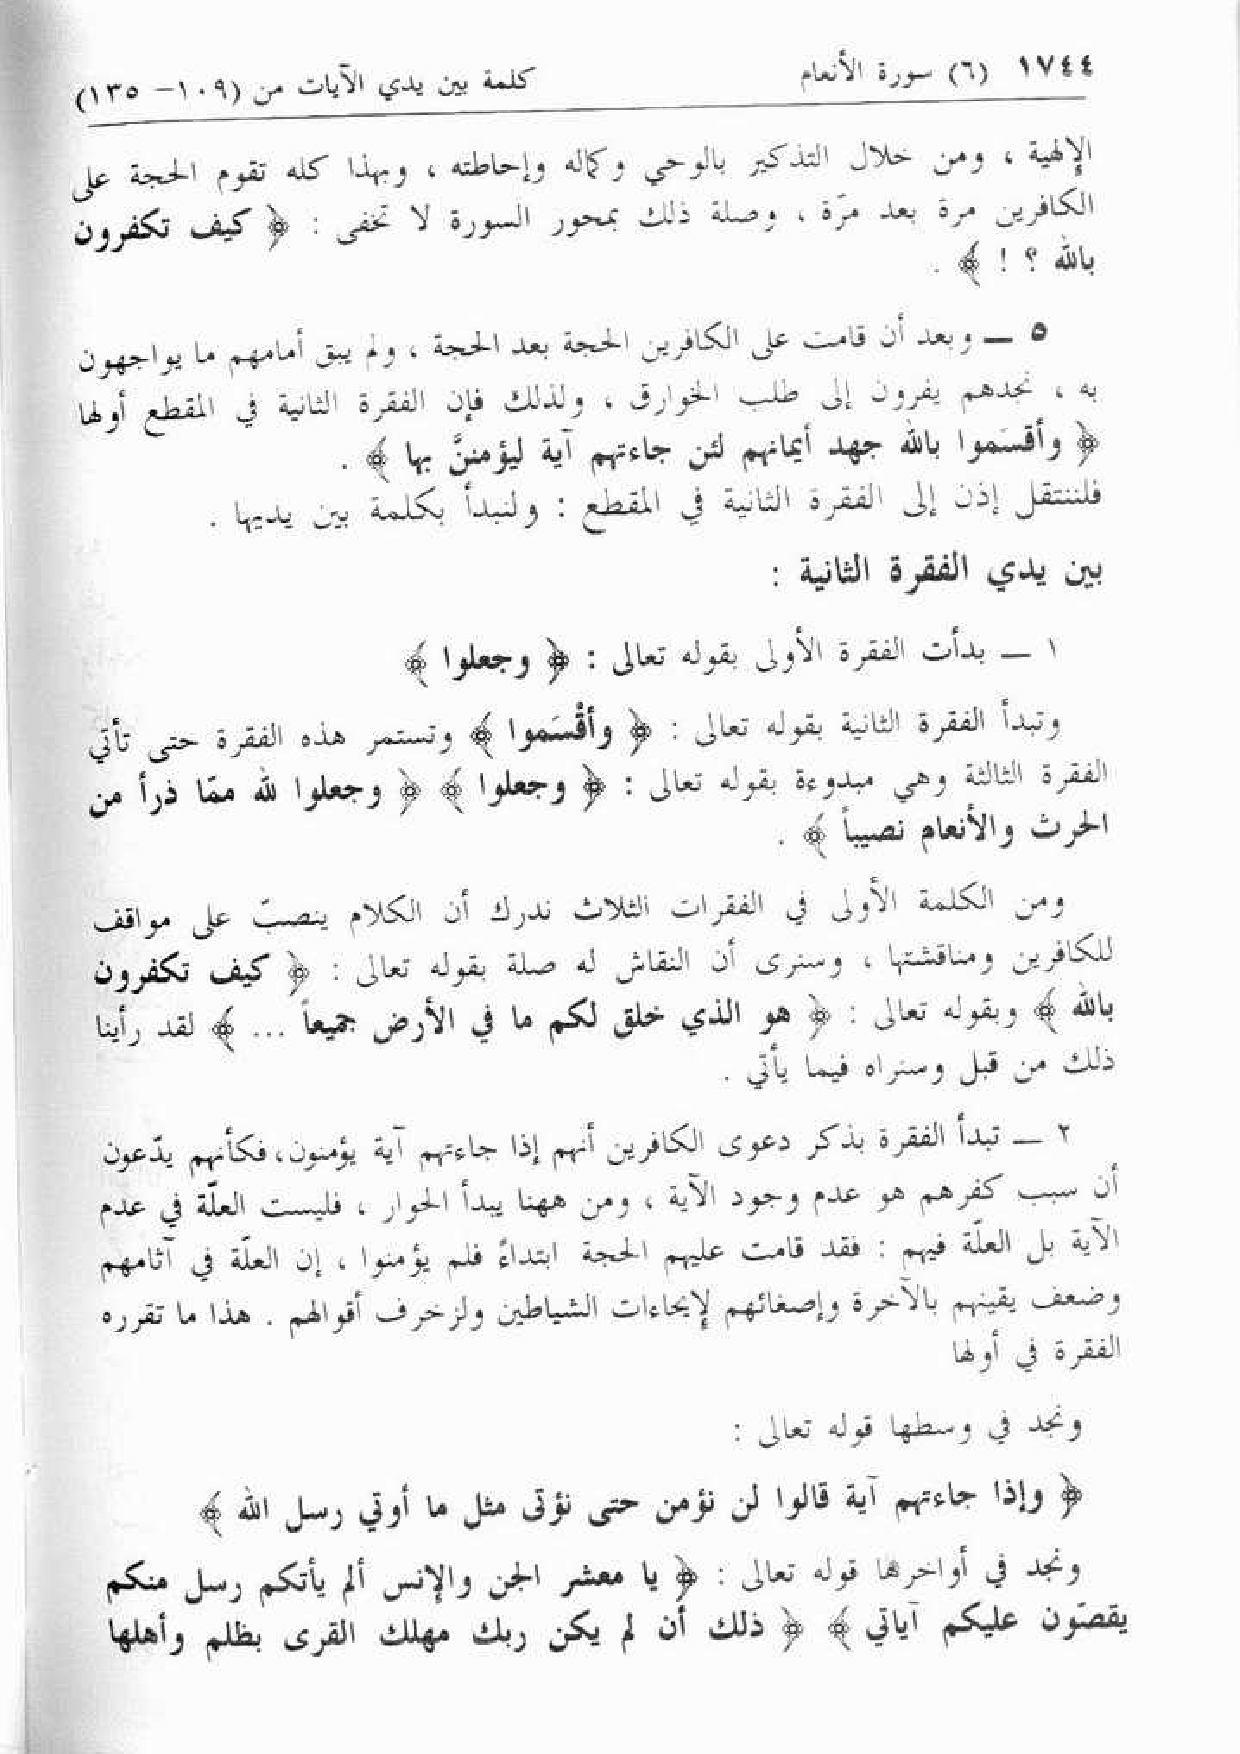 ١٧٤٤ (٦) سورة الأنعام كلمة بين يدي الآيات من (١٠٩- ١٣٥)
الإلهية ، ومن خلال التذكير بالوحي وكماله وإحاطته ، وبهذا كله تقوم الحجة على
الكافرين مرة بعد مرّة ، وصلة ذلك بمحور السورة لا تخفى : ﴿ كيف تكفرون
بالله ؟ ! ﴾ .
٥ ــ وبعد أن قامت على الكافرين الحجة بعد الحجة ، ولم يبق أمامهم ما يواجهون
به ، نجدهم يفرون إلى طلب الخوارق ، ولذلك فإن الفقرة الثانية في المقطع أولها
﴿ وأقسَموا بالله جهد أيمانهم لئن جاءتهم آية ليؤمننَّ بها ﴾ .
فلننتقل إذن إلى الفقرة الثانية في المقطع : ولنبدأ بكلمة بين يديها .
بين يدي الفقرة الثانية :
١ ــ بدأت الفقرة الأولى بقوله تعالى : ﴿ وجعلوا ﴾
وتبدأ الفقرة الثانية بقوله تعالى : ﴿ وأقْسَموا ﴾ وتستمر هذه الفقرة حتى تأتي
الفقرة الثالثة وهي مبدوءة بقوله تعالى : ﴿ وجعلوا ﴾ ﴿ وجعلوا لله ممّا ذرأ من
الحرث والأنعام نصيباً ﴾ .
ومن الكلمة الأولى في الفقرات الثلاث ندرك أن الكلام ينصبّ على مواقف
للكافرين ومناقشتها ، وسنرى أن النقاش له صلة بقوله تعالى : ﴿ كيف تكفرون
بالله ﴾ وبقوله تعالى : ﴿ هو الذي خلق لكم ما في الأرض جميعاً ... ﴾ لقد رأينا
ذلك من قبل وسنراه فيما يأتي .
٢ ــ تبدأ الفقرة بذكر دعوى الكافرين أنهم إذا جاءتهم آية يؤمنون، فكأنهم يدّعون
أن سبب كفرهم هو عدم وجود الآية ، ومن ههنا يبدأ الحوار ، فليست العلّة في عدم
الآية بل العلّة فيهم : فقد قامت عليهم الحجة ابتداءً فلم يؤمنوا ، إن العلّة في آثامهم
وضعف يقينهم بالآخرة وإصغائهم لإيحاءات الشياطين ولزخرف أقوالهم . هذا ما تقرره
الفقرة في أولها
ونجد في وسطها قوله تعالى :
﴿ وإذا جاءتهم آية قالوا لن نؤمن حتى نؤتى مثل ما أوتي رسل الله ﴾
ونجد في أواخرها قوله تعالى : ﴿ يا معشر الجن والإنس ألم يأتكم رسل منكم
يقصّون عليكم آياتي ﴾ ﴿ ذلك أن لم يكن ربك مهلك القرى بظلم وأهلها